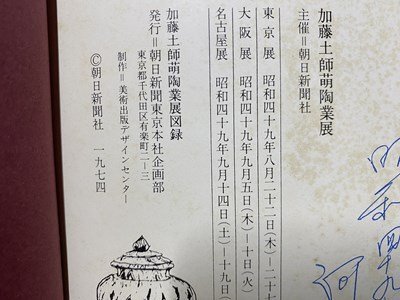 加藤土師萌陶業展
主催＝朝日新聞社
東京展 昭和四十九年八月二十二日(木)＝二十七
大阪展 昭和四十九年九月五日(木)＝十日(火)
名古屋展 昭和四十九年九月十四日(土)＝十九日(
加藤土師萌陶業展図録
発行＝朝日新聞東京本社企画部
東京都千代田区有楽町二ー三
制作＝美術出版デザインセンター
©朝日新聞社 一九七四